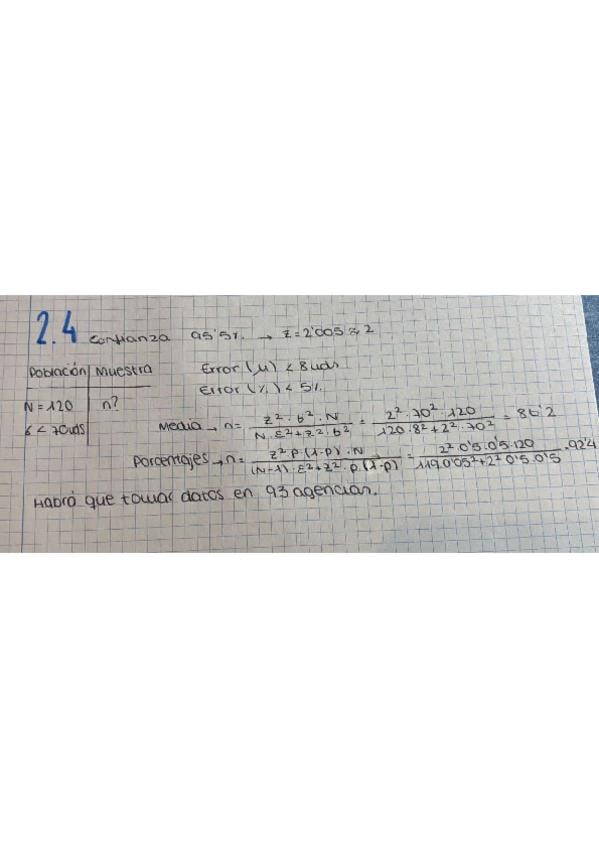 2.4 Confianza 95'5%. → Z=2'005 ≈ 2
Población Muestra Error (μ) < 8 uds
Error (%) < 5%
N = 120 n?
σ < 70uds
Media → n = Z²·σ²·N / N·ε²+Z²·σ² = 2²·70²·120 / 120·8²+2²·70² = 86'2
Porcentajes → n = Z²·P·(1-P)·N / (N-1)·ε²+Z²·P·(1-P) = 2²·0'5·0'5·120 / 119·0'05²+2²·0'5·0'5 · 92'4
Habrá que tomar datos en 93 agencias.